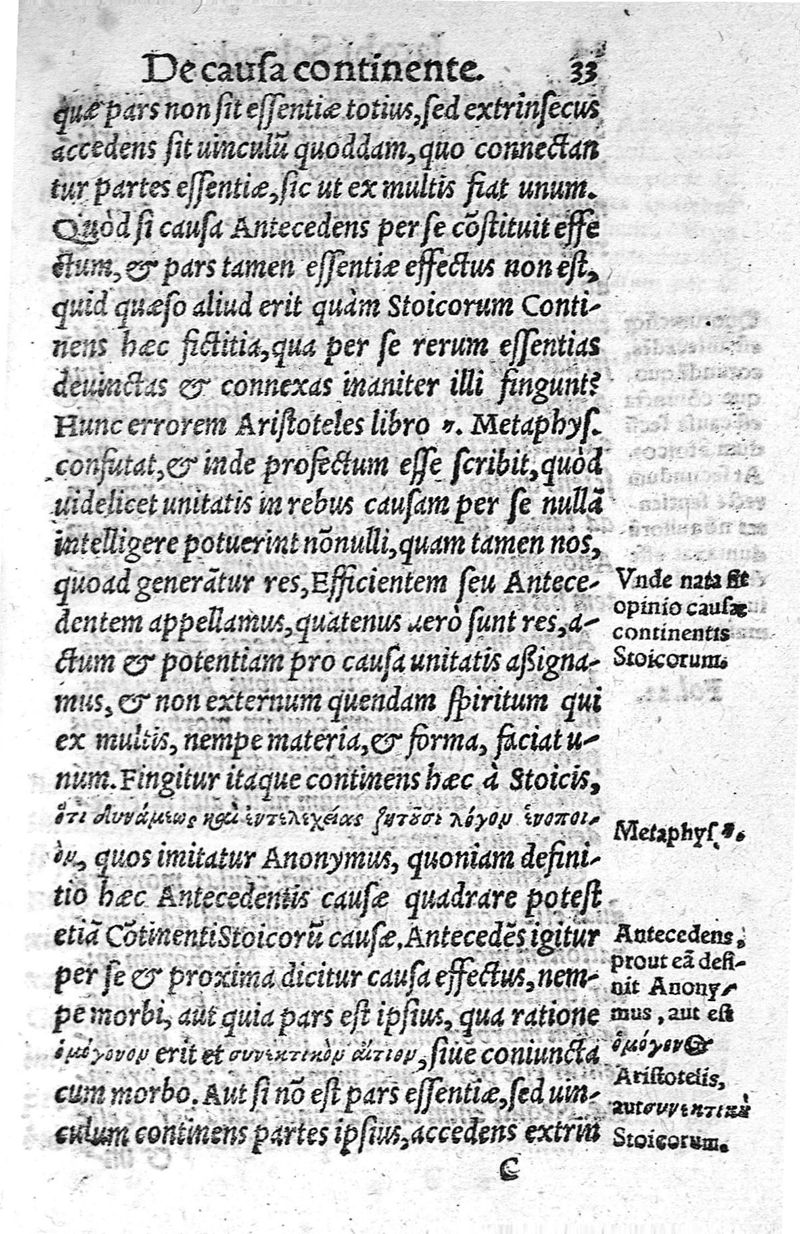 De causa continente. 33
quæ pars non sit essentiæ totius, sed extrinsecus
accedens sit uinculũ quoddam, quo connectan
tur partes essentiæ, sic ut ex multis fiat unum.
Quòd si causa Antecedens per se cõstituit effe
ctum, & pars tamen essentiæ effectus non est,
quid quæso aliud erit quàm Stoicorum Conti-
nens hæc fictitia, qua per se rerum essentias
deuinctas & connexas inaniter illi fingunt?
Hunc errorem Aristoteles libro η. Metaphys.
confutat, & inde profectum esse scribit, quòd
uidelicet unitatis in rebus causam per se nullã
intelligere potuerint nõnulli, quam tamen nos,
quoad generãtur res, Efficientem seu Antece-
dentem appellamus, quatenus uerò sunt res, a-
ctum & potentiam pro causa unitatis aßigna-
mus, & non externum quendam spiritum qui
ex multis, nempe materia, & forma, faciat u-
num. Fingitur itaque continens hæc à Stoicis,
ὅτι δυνάμεως καὶ ἐντελεχείας ζητοῦσι λόγον ἑνοποι-
ὸν, quos imitatur Anonymus, quoniam defini-
tio hæc Antecedentis causæ quadrare potest
etiã Cõtinenti Stoicorũ causæ. Antecedẽs igitur
per se & proxima dicitur causa effectus, nem-
pe morbi, aut quia pars est ipsius, qua ratione
ὁμόγονον erit et συνεκτικὸν αἴτιον, siue coniuncta
cum morbo. Aut si nõ est pars essentiæ, sed uin-
culum continens partes ipsius, accedens extrin
C
Vnde nata sit
opinio causæ
continentis
Stoicorum.
Metaphys. η.
Antecedens,
prout eã defi-
nit Anony-
mus, aut est
ὁμόγονος
Aristotelis,
aut συνεκτικὰ
Stoicorum.